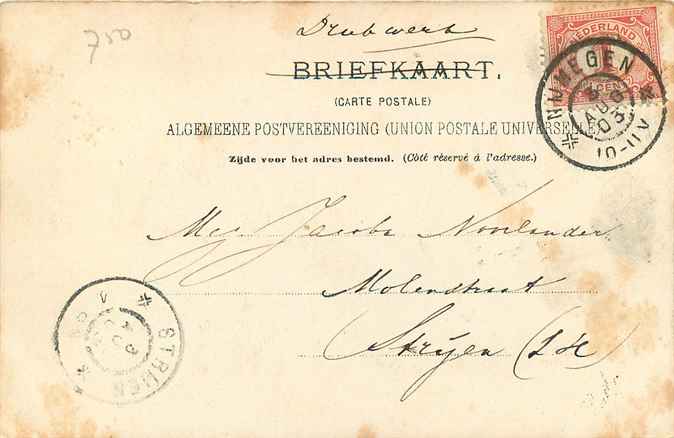 750
Drukwerk
NEDERLAND
BRIEFKAART.
NIJMEGEN
AUG
03
10-11V
(CARTE POSTALE)
ALGEMEENE POSTVEREENIGING (UNION POSTALE UNIVERSELLE)
Zijde voor het adres bestemd. (Côté réservé à l'adresse.)
Mej Jacoba Noorlander
Molenstraat
Strijen (ZH)
STRIJEN